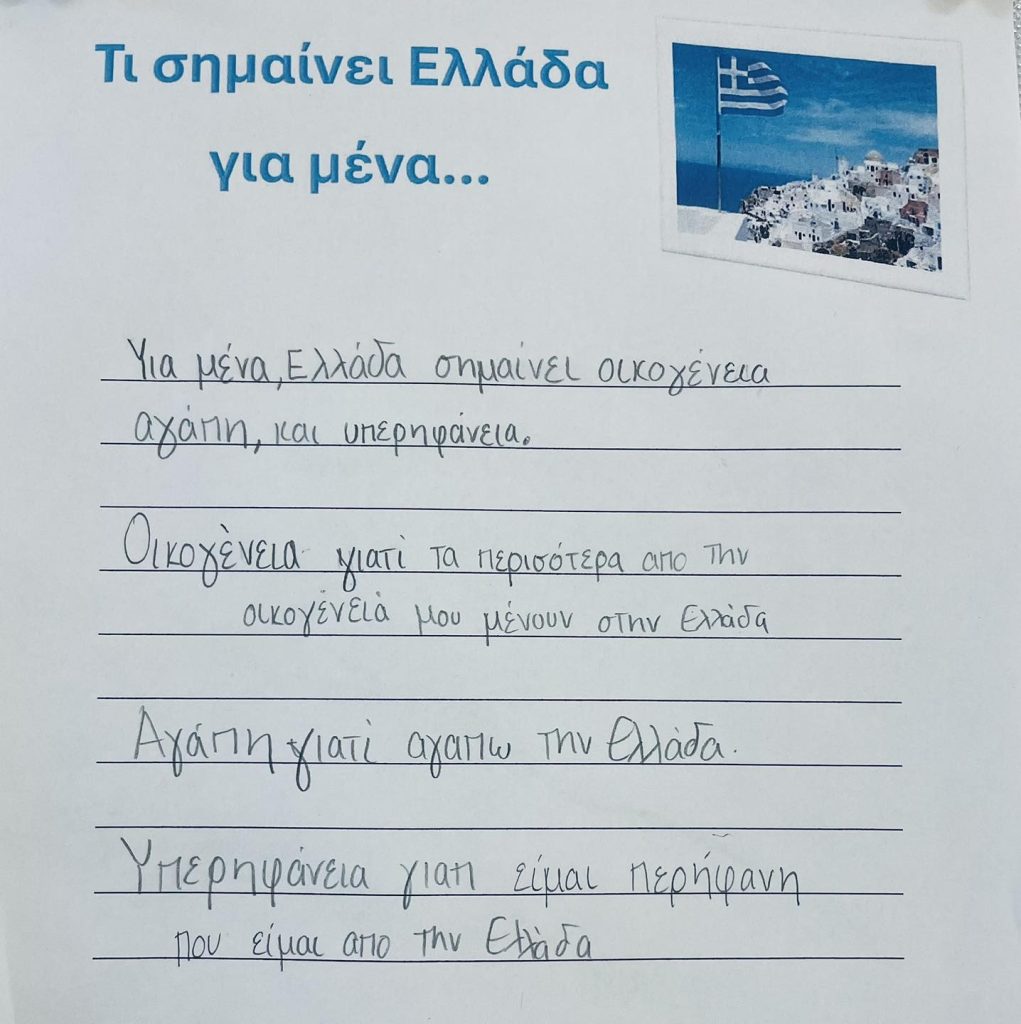 Τι σημαίνει Ελλάδα
για μένα...
Για μένα, Ελλάδα σημαίνει οικογένεια
αγάπη, και υπερηφάνεια.
Οικογὲνεια γιατί τα περισότερα απο την
οικογένειὰ μου μένουν στην Ελλάδα
Αγάπη γιατί αγαπω την Ελλάδα.
Υπερηφάνεια γιατι είμαι περήφανη
που είμαι απο την Ελλάδα